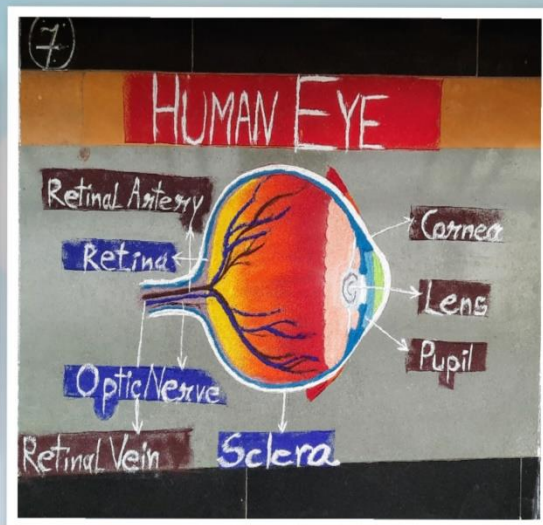 7
HUMAN EYE
Retinal Artery
Retina
Optic Nerve
Retinal Vein
Sclera
Cornea
Lens
Pupil